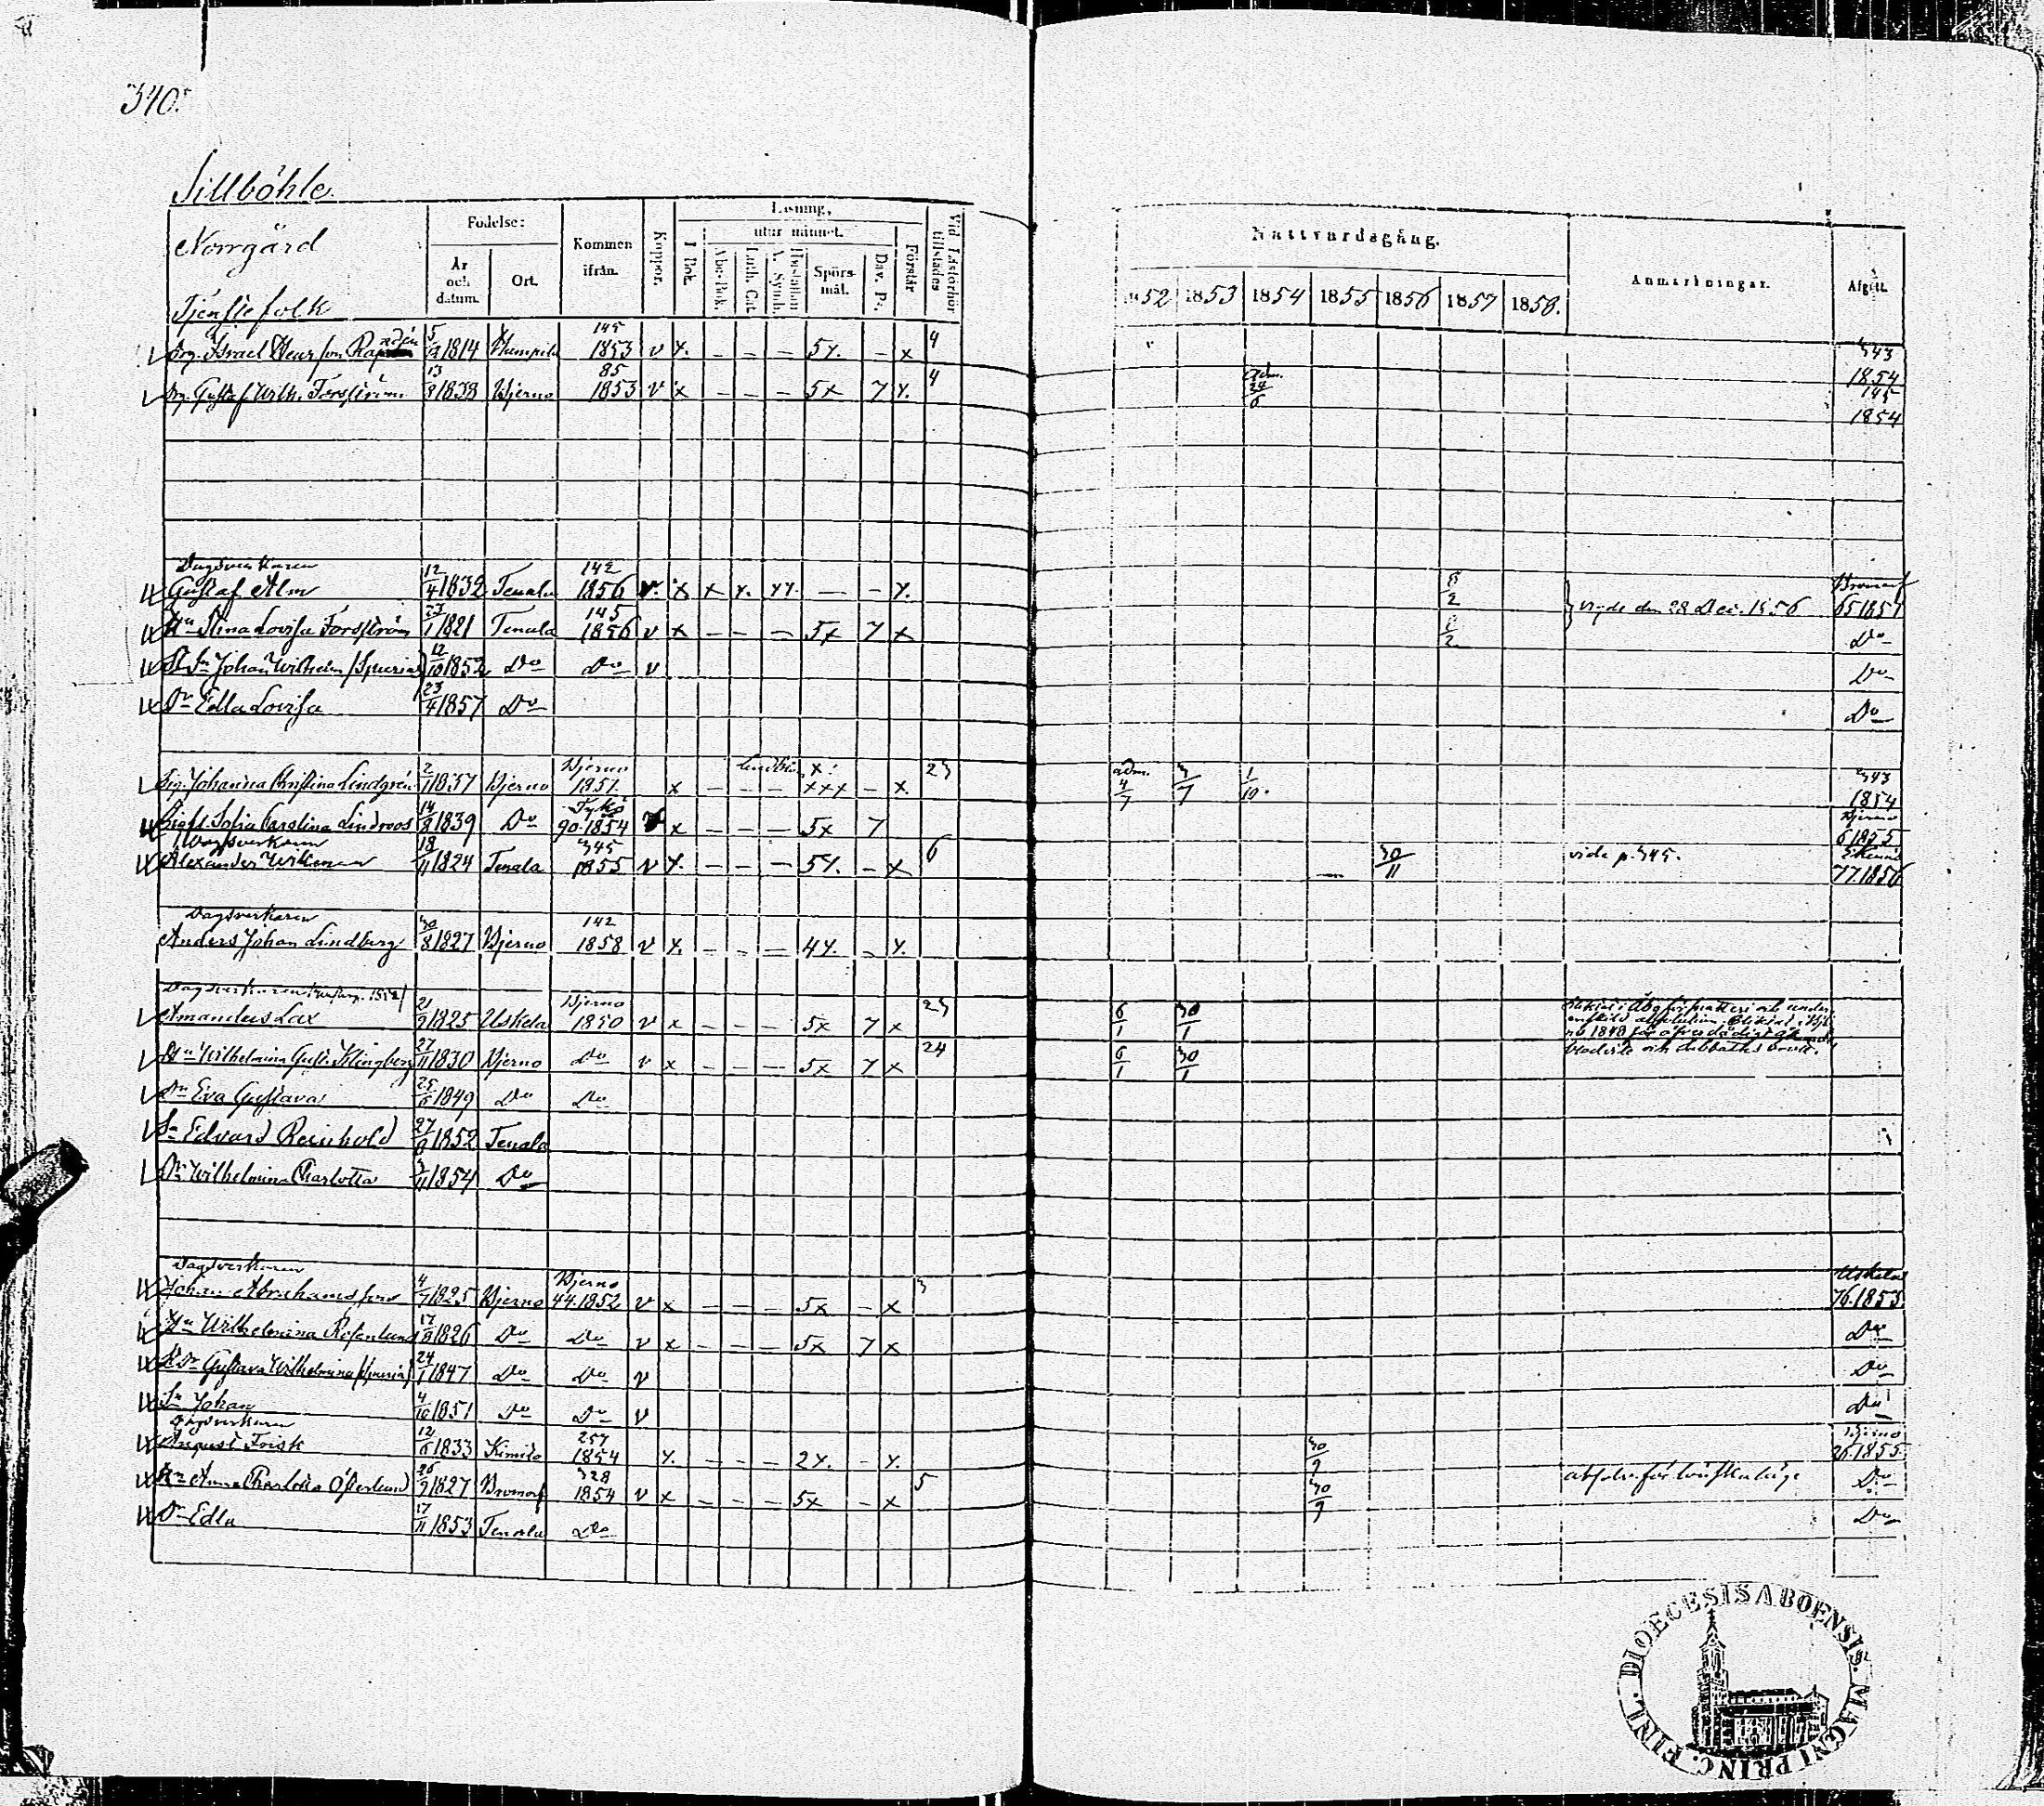 340.
Sillböhle.
Norrgård
Tjenstefolk
Födelse:
År och datum.
Ort.
Kommen ifrån.
Koppor.
Läsning,
I Bok.
utur minnet.
Abc-Bok.
Luth. Cat.
A. Symb.
Hustaflan
Spörsmål.
Dav. Ps.
Förstår
Vid Läsförhör tillstädes
Nattvardsgång.
1852 1853 1854 1855 1856 1857 1858.
Anmärkningar.
Afgått.
Drg. Israel Henrsson 5/12 1814 Humpila 145 1853 v x. - - - 5x. - x 4 343 1854
Drg. Gustaf Wilh. Forsström 13/8 1838 Bjerno 85 1853 v x - - - 5x 7 x. 4 adm. 24/6 145 1854
Dagsverkaren
Gustaf Alm 12/4 1832 Tenala 142 1856 v. x x x. xx. — - x. 8/2 vigde den 28 Dec. 1856 Bromarf 65 1857
Hu Stina Lovisa Forsström 23/1 1821 Tenala 145 1856 v x - - - 5x 7 x 8/2 Do
Sn Johan Wilhelm /Spurius/ 12/10 1852 Do Do v Do
Dr Edla Lovisa 23/4 1857 Do Do
Pig. Johanna Christina Lindgrén 2/1 1837 Bjerno Bjerno 1851. x - - - xxx - x 23 adm. 4/7 3/7 1/10. 343 1854
Sofia Carolina Lindroos 14/8 1839 Do Tykö 90. 1854 x - - - 5x 7 Bjerno 6 1855
Dagsverkaren
Alexander 18/11 1824 Tenala 345 1855 v x. - - - 5x. - x 6 — 30/11 vide p. 345. Ekenäs 77. 1856
Dagsverkaren
Anders Johan Lindberg 30/8 1827 Bjerno 142 1858 v x. - - - 4x. - x.
Dagsverkaren
Amandus Lax 21/9 1825 Uskela Bjerno 1850 v x - - - 5x 7 x 23 6/1 30/1
Hu Wilhelmina Gust. Klingberg 27/11 1830 Bjerno Do v x - - - 5x 7 x 24 6/1 30/1
Dr Eva Gustava 25/6 1849 Do Do
Sn Edvard Reinhold 27/9 1852 Tenala
Dr Wilhelmina Charlotta 3/11 1854 Do
Dagsverkaren
Johan Abrahamsson 4/7 1825 Bjerno Bjerno 44. 1852 v x - - - 5x - x 3 Uskela 76. 1853.
Hu Wilhelmina Rosenlund 17/8 1826 Do Do v x - - - 5x 7 x Do
Dr Gustava Wilhelmina /Spuria/ 24/1 1847 Do Do v Do
Sn Johan 4/10 1851 Do Do v Do
Dagsverkaren
August Frisk 12/6 1833 Kimito 257 1854 x. - - - 2x. - x. 30/9 Bjerno 26. 1855.
Hu Anna Charlotta Österlund 26/9 1827 Bromarf 328 1854 v x - - - 5x - x 5 30/9 Do
Dr Edla 17/11 1853 Tenala Do Do
FINL. DIOECESIS ABOENSIS. MAGNI PRINC.